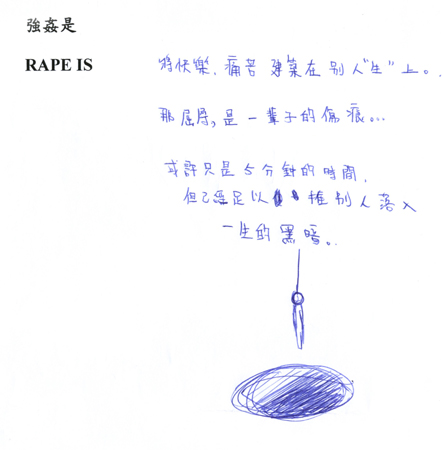 強姦是
RAPE IS
將快樂,痛苦 建築在 別人"生"上。
那屈辱,是一輩子的傷痕…
或許只是5分鐘的時間,
但已經足以 推別人落入
一生的黑暗。